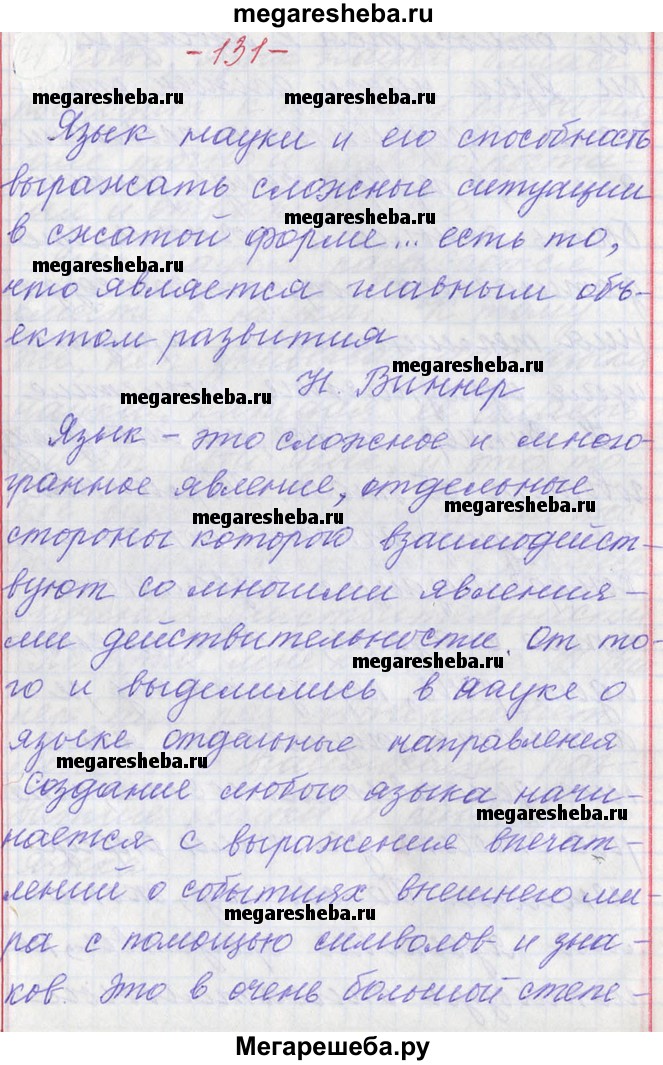 megaresheba.ru
-131-
megaresheba.ru megaresheba.ru
Язык науки и его способность
выражать сложные ситуации
megaresheba.ru
в сжатой форме... есть то,
megaresheba.ru
что является главным объ-
ектом развития
megaresheba.ru
Н. Виннер
megaresheba.ru
Язык - это сложное и много-
гранное явление, отдельные
megaresheba.ru
megaresheba.ru
стороны которого взаимодейст-
вуют со многими явления-
ми действительности. От то-
megaresheba.ru
го и выделились в науке о
языке отдельные направления
megaresheba.ru
Создание любого языка начи-
megaresheba.ru
нается с выражения впечат-
лений о событиях внешнего ми-
megaresheba.ru
ра с помощью символов и зна-
ков. Это в очень большой степе-
Мегарешеба.ру